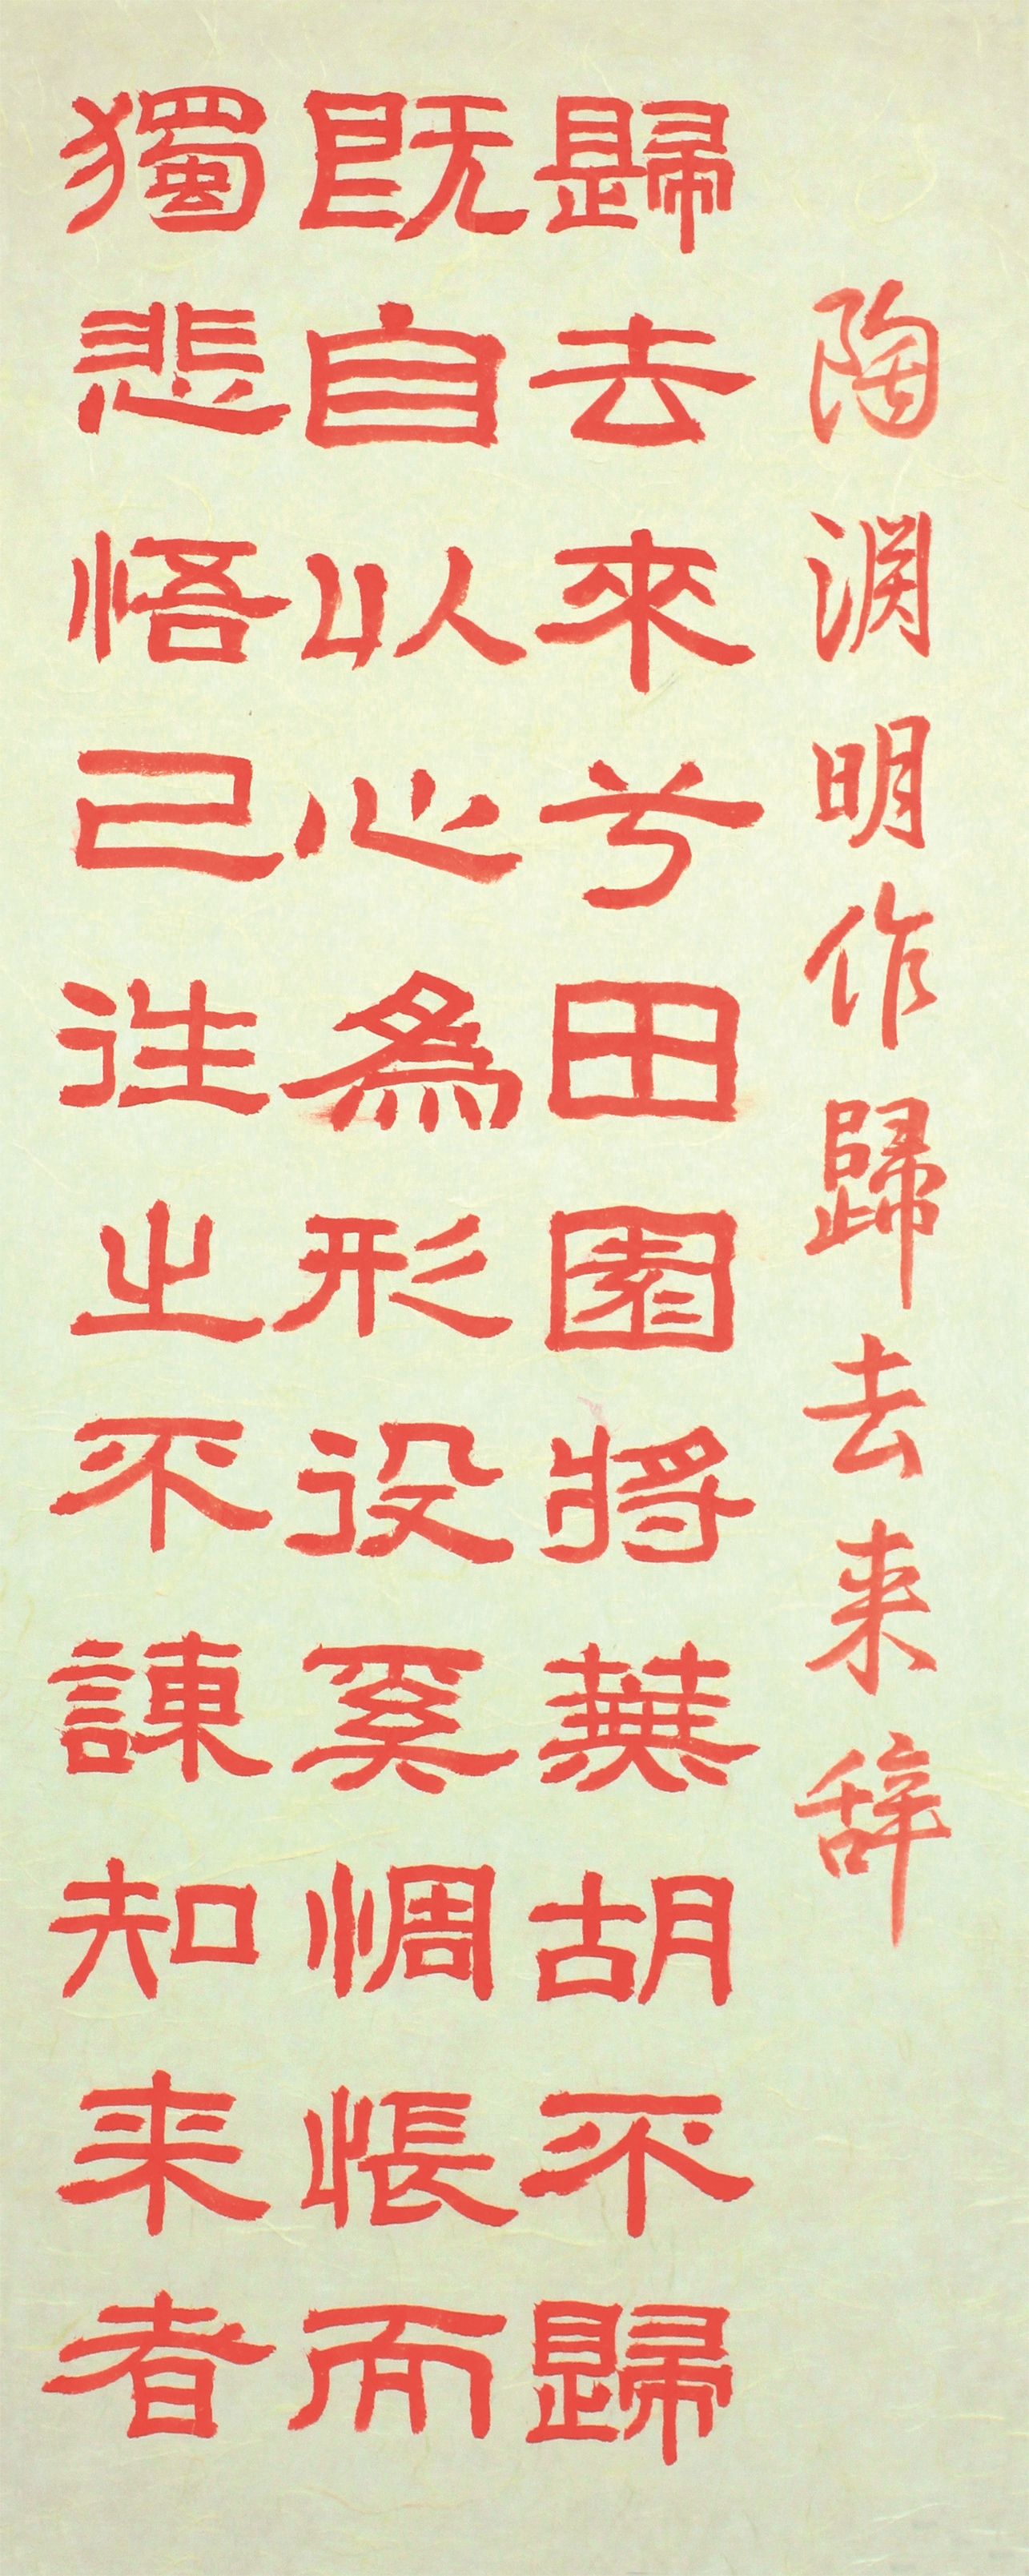 陶渊明作歸去来辞
歸去來兮田園將蕪胡不歸
既自以心為形役奚惆悵而
獨悲悟已往之不諫知来者